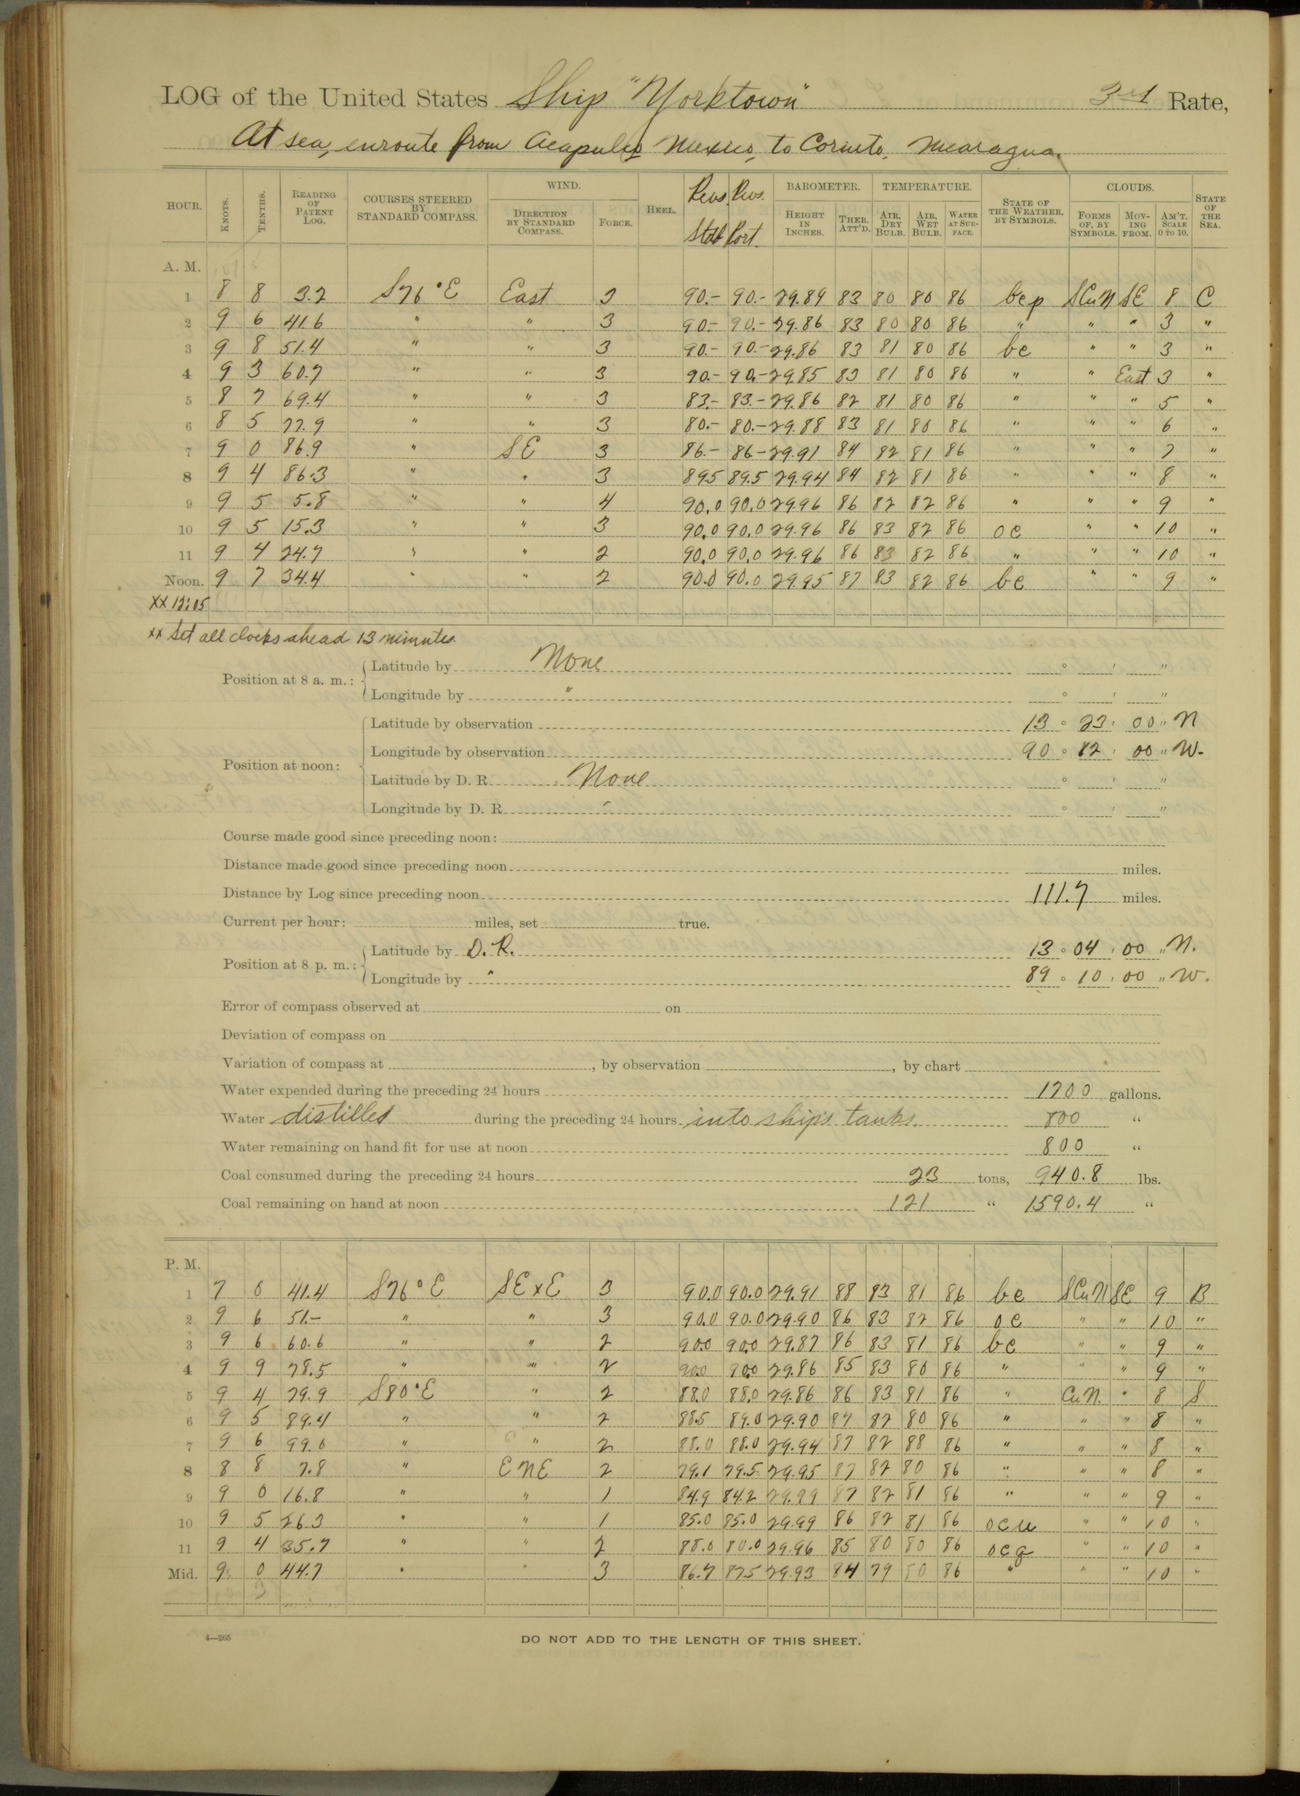 LOG of the United States Ship "Yorktown" 3rd Rate,
At sea, enroute from Acapulco Mexico, to Corinto, Nicaragua.
HOUR. KNOTS. TENTHS. READING OF PATENT LOG. COURSES STEERED BY STANDARD COMPASS. WIND. DIRECTION BY STANDARD COMPASS. FORCE. HEEL. Revs. Stbd Revs. Port. BAROMETER. HEIGHT IN INCHES. THER. ATT'D. TEMPERATURE. AIR, DRY BULB. AIR, WET BULB. WATER AT SURFACE. STATE OF THE WEATHER, BY SYMBOLS. CLOUDS. FORMS OF, BY SYMBOLS. MOVING FROM. AM'T. SCALE 0 TO 10. STATE OF THE SEA.
A. M.
1 8 8 3.2 S76°E East 3 90.- 90.- 29.89 83 80 80 86 bcp SCuN SE 8 C
2 9 6 41.6 " " 3 90.- 90.- 29.86 83 80 80 86 " " " 3 "
3 9 8 51.4 " " 3 90.- 90.- 29.86 83 81 80 86 bc " " 3 "
4 9 3 60.7 " " 3 90.- 90.- 29.85 83 81 80 86 " " East 3 "
5 8 7 69.4 " " 3 83.- 83.- 29.86 82 81 80 86 " " " 5 "
6 8 5 77.9 " " 3 80.- 80.- 29.88 83 81 80 86 " " " 6 "
7 9 0 86.9 " SE 3 86.- 86- 29.91 84 82 81 86 " " " 7 "
8 9 4 86.3 " " 3 89.5 89.5 29.94 84 82 81 86 " " " 8 "
9 9 5 5.8 " " 4 90.0 90.0 29.96 86 82 82 86 " " " 9 "
10 9 5 15.3 " " 3 90.0 90.0 29.96 86 83 82 86 oc " " 10 "
11 9 4 24.7 " " 2 90.0 90.0 29.96 86 83 82 86 " " " 10 "
Noon. 9 7 34.4 " " 2 90.0 90.0 29.95 87 83 82 86 bc " " 9 "
xx 12:05
xx Set all clocks ahead 13 minutes
Position at 8 a. m.: Latitude by None ° ' "
Longitude by " ° ' "
Position at noon: Latitude by observation 13 ° 23 ' 00 " N
Longitude by observation 90 ° 12 ' 00 " W.
Latitude by D. R. None ° ' "
Longitude by D. R. " ° ' "
Course made good since preceding noon:
Distance made good since preceding noon miles.
Distance by Log since preceding noon 111.7 miles.
Current per hour: miles, set true.
Position at 8 p. m.: Latitude by D.R. 13 ° 04 ' 00 " N.
Longitude by " 89 ° 10 ' 00 " W.
Error of compass observed at on
Deviation of compass on
Variation of compass at , by observation , by chart
Water expended during the preceding 24 hours 1700 gallons.
Water distilled during the preceding 24 hours into ships tanks. 800 "
Water remaining on hand fit for use at noon 800 "
Coal consumed during the preceding 24 hours 23 tons, 940.8 lbs.
Coal remaining on hand at noon 121 " 1590.4 "
P. M.
1 7 0 41.4 S76°E SExE 3 90.0 90.0 29.91 88 83 81 86 bc SCuN SE 9 B
2 9 6 51.- " " 3 90.0 90.0 29.90 86 83 82 86 oc " " 10 "
3 9 6 60.6 " " 2 90.0 90.0 29.87 86 83 81 86 bc " " 9 "
4 9 9 78.5 " " 2 90.0 90.0 29.86 85 83 80 86 " " " 9 "
5 9 4 79.9 S80°E " 2 88.0 88.0 29.86 86 83 81 86 " CuN. " 8 S
6 9 5 89.4 " " 2 88.5 89.0 29.90 87 82 80 86 " " " 8 "
7 9 6 99.0 " " 2 88.0 88.0 29.94 87 82 88 86 " " " 8 "
8 8 8 7.8 " ENE 2 79.1 79.5 29.95 87 82 80 86 " " " 8 "
9 9 0 16.8 " " 1 84.9 84.2 29.99 87 82 81 86 " " " 9 "
10 9 5 26.3 " " 1 85.0 85.0 29.99 86 82 81 86 ocu " " 10 "
11 9 4 35.7 " " 2 88.0 80.0 29.96 85 80 80 86 ocq " " 10 "
Mid. 9 0 44.7 " " 3 86.7 87.5 29.93 84 79 80 86 " " " 10 "
4—265
DO NOT ADD TO THE LENGTH OF THIS SHEET.